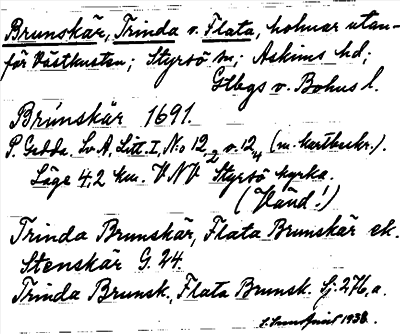 Brunskär, Trinda o. Flata, holmar utan-
för Västkusten; Styrsö sn; Askims hd;
Gtbgs o. Bohus l.
Brunskär 1691.
P. Gedda. Sv. A. Litt. I, No 12, 2 o. 12, 4 (m. kartbeskr.).
Läge 4,2 km. VNV Styrsö kyrka.
(Vänd!)
Trinda Brunskär, Flata Brunskär ek.
Stenskär G. 24.
Trinda Brunsk. Flata Brunsk. Sj. 276, a.
1938.